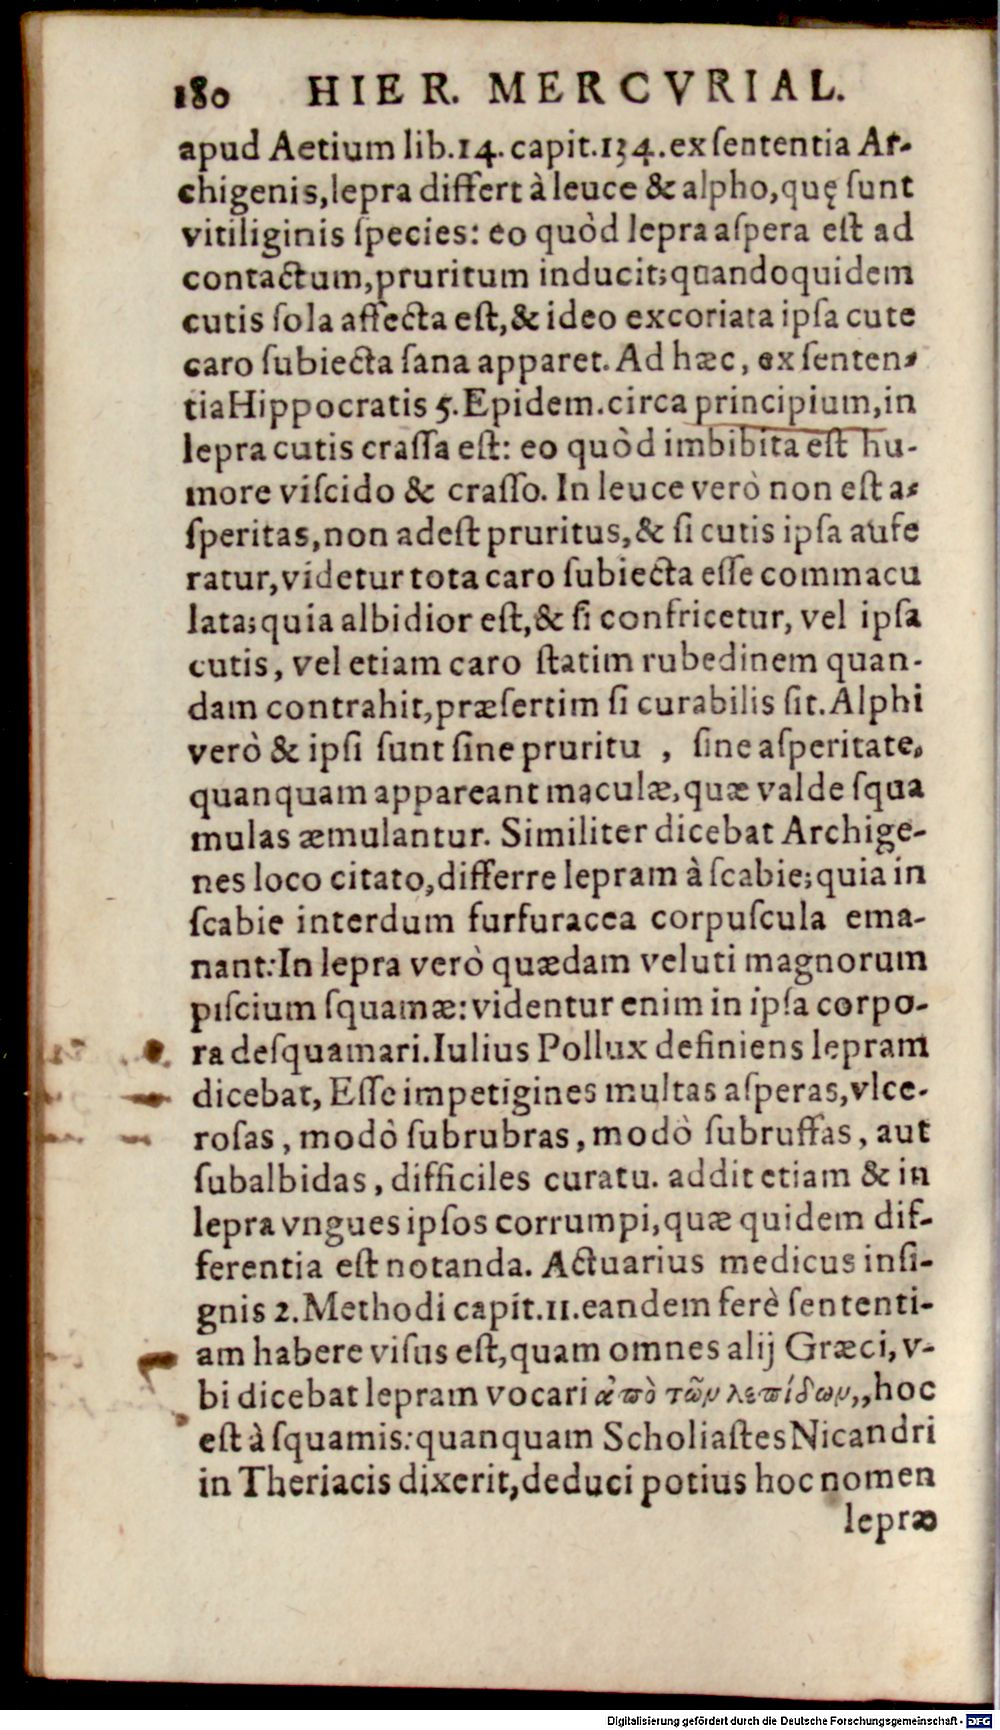 180 HIER. MERCVRIAL.
apud Aetium lib.14. capit.134.ex ſententia Ar-
chigenis,lepra differt à leuce & alpho,quę ſunt
vitiliginis ſpecies: eo quòd lepra aſpera eſt ad
contactum,pruritum inducit;quandoquidem
cutis ſola affecta eſt,& ideo excoriata ipſa cute
caro ſubiecta ſana apparet. Ad hæc, ex ſenten-
tia Hippocratis 5.Epidem.circa principium,in
lepra cutis craſſa eſt: eo quòd imbibita eſt hu-
more viſcido & craſſo. In leuce verò non eſt a-
ſperitas,non adeſt pruritus,& ſi cutis ipſa aufe
ratur,videtur tota caro ſubiecta eſſe commacu
lata;quia albidior eſt,& ſi confricetur, vel ipſa
cutis, vel etiam caro ſtatim rubedinem quan-
dam contrahit,præſertim ſi curabilis ſit. Alphi
verò & ipſi ſunt ſine pruritu , ſine aſperitate,
quanquam appareant maculæ,quæ valde ſqua
mulas æmulantur. Similiter dicebat Archige-
nes loco citato,differre lepram à ſcabie;quia in
ſcabie interdum furfuracea corpuſcula ema-
nant:In lepra verò quædam veluti magnorum
piſcium ſquamæ:videntur enim in ipſa corpo-
ra deſquamari.Iulius Pollux definiens lepram
dicebat, Eſſe impetigines multas aſperas,vlce-
roſas, modò ſubrubras, modò ſubruffas, aut
ſubalbidas, difficiles curatu. addit etiam & in
lepra vngues ipſos corrumpi,quæ quidem dif-
ferentia eſt notanda. Actuarius medicus inſi-
gnis 2.Methodi capit.11.eandem ferè ſententi-
am habere viſus eſt,quam omnes alij Græci, v-
bi dicebat lepram vocari ἀπὸ τῶν λεπίδων,,hoc
eſt à ſquamis:quanquam Scholiaſtes Nicandri
in Theriacis dixerit,deduci potius hoc nomen
lepræ
Digitalisierung gefördert durch die Deutsche Forschungsgemeinschaft - DFG